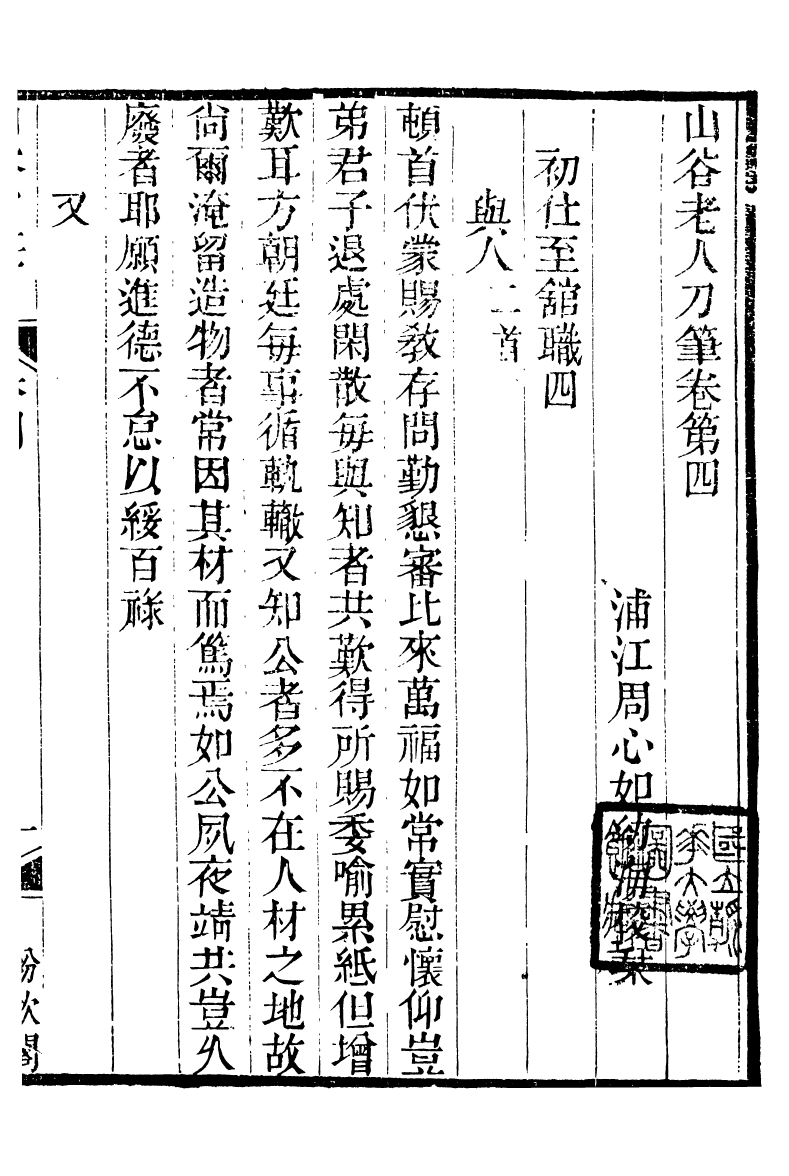 山谷老人刀筆卷第四
浦江周心如 海校栞
初仕至舘職四
與人二首
頓首伏蒙賜敎存問勤懇審比來萬福如常實慰懷仰豈
弟君子退處閑散每與知者共歎得所賜委喻累紙但增
歎耳方朝廷每事循軌轍又知公者多不在人材之地故
尙爾淹留造物者常因其材而篤焉如公夙夜靖共豈久
廢者耶願進德不怠以綏百祿
又
紛欣閣
國立清
華大學
圖書
館藏